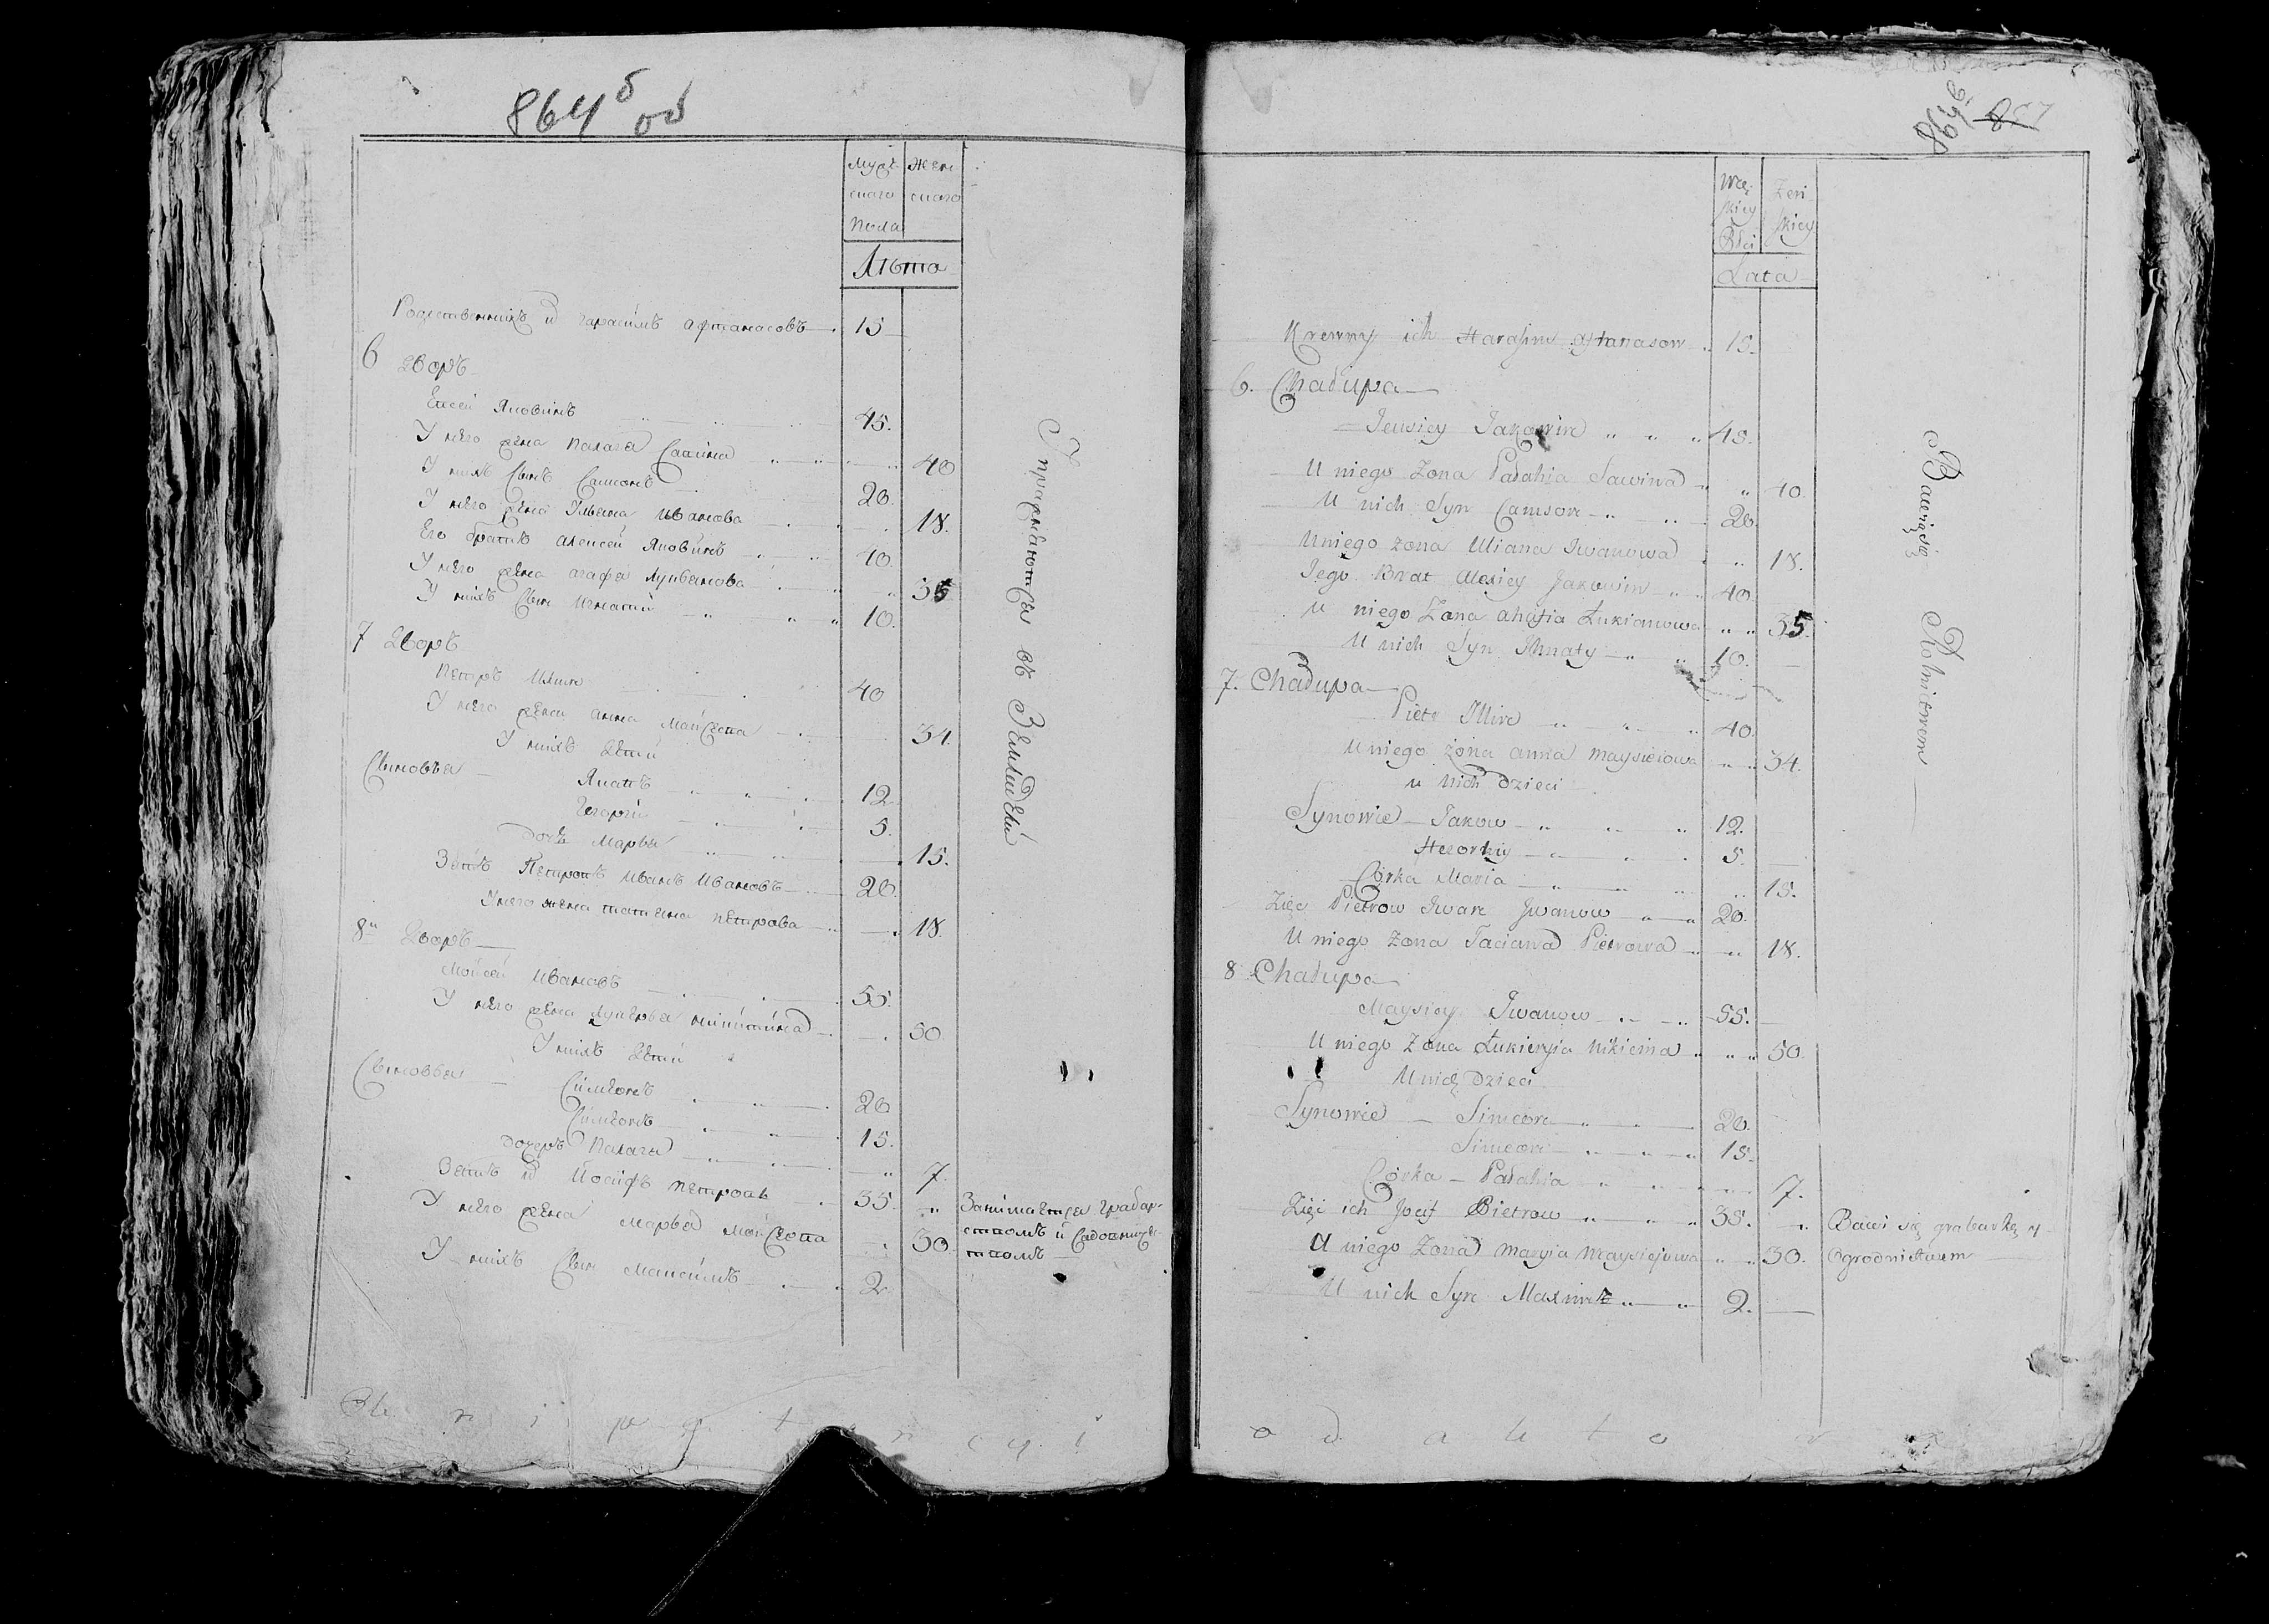 864 б об
Мужескаго Пола
Женскаго
Лѣта
Родственникъ их Гарасимъ Афтанасовъ 15
6 Дворъ
Евсей Яковинъ 45.
У него жена Палагея Савина 40
У нихъ Сынъ Самсонъ 20.
У него жена Ульяна Иванова 18.
Его братъ Алексей Яковинъ 40.
У него жена Агафея Лукьянова 35
У нихъ Сынъ Игнатий 10.
7 Дворъ
Петръ Илин 40
У него жена Анна Майсеева 34.
У нихъ Дети
Сыновья Яковъ 12
Георгий 5.
Дочь Марья 15.
Зять Петровъ Иванъ Ивановъ 20.
У него жена Татьяна Петрова 18.
8й Дворъ
Мойсей Ивановъ 55.
У него жена Лукерья Никитина 50
У нихъ Дети
Сыновья Симеонъ 20
Симеонъ 15.
дочерь Палагея 7.
Зять их Иосифъ Петровъ 35.
У него жена Марья Мойсеева 30.
У нихъ Сын Максимъ 2
Упражняются въ Земледелии
Занимается Грабар-
ствомъ и Садовниче-
ством
864 б. 857
Męskiey Płci
Żeńskiey
Lata
Krewny ich Harasim Aftanasow 15.
6. Chałupa
Jewsiey Jakowin 45.
U niego Żona Pałahia Sawina 40.
U nich Syn Samson 20.
U niego żona Uliana Iwanowa 18.
Jego Brat Alexiey Jakowin 40.
U niego Żona Ahafia Łukianowa 35.
U nich Syn Ihnaty 10.
7. Chałupa
Piotr Illin 40.
U niego żona Anna Maysieiowa 34.
u Nich dzieci
Synowie Jakow 12.
Heorhiy 5.
Córka Maria 15.
Zięć Pietrow Iwan Iwanow 20.
U niego Żona Taciana Pietrowa 18.
8 Chałupa
Maysiey Iwanow 55.
U niego Żona Łukieryia Nikicina 50.
U nich Dzieci
Synowie Simeon 20.
Simeon 15.
Córka Pałahia 7.
Zięć ich Jozif Pietrow 35.
U niego Żona Maryia Maysiejowa 30.
U nich Syn Maxim 2.
Bawią się Rolnictwem
Bawi się grabarką y
Ogrodnictwem